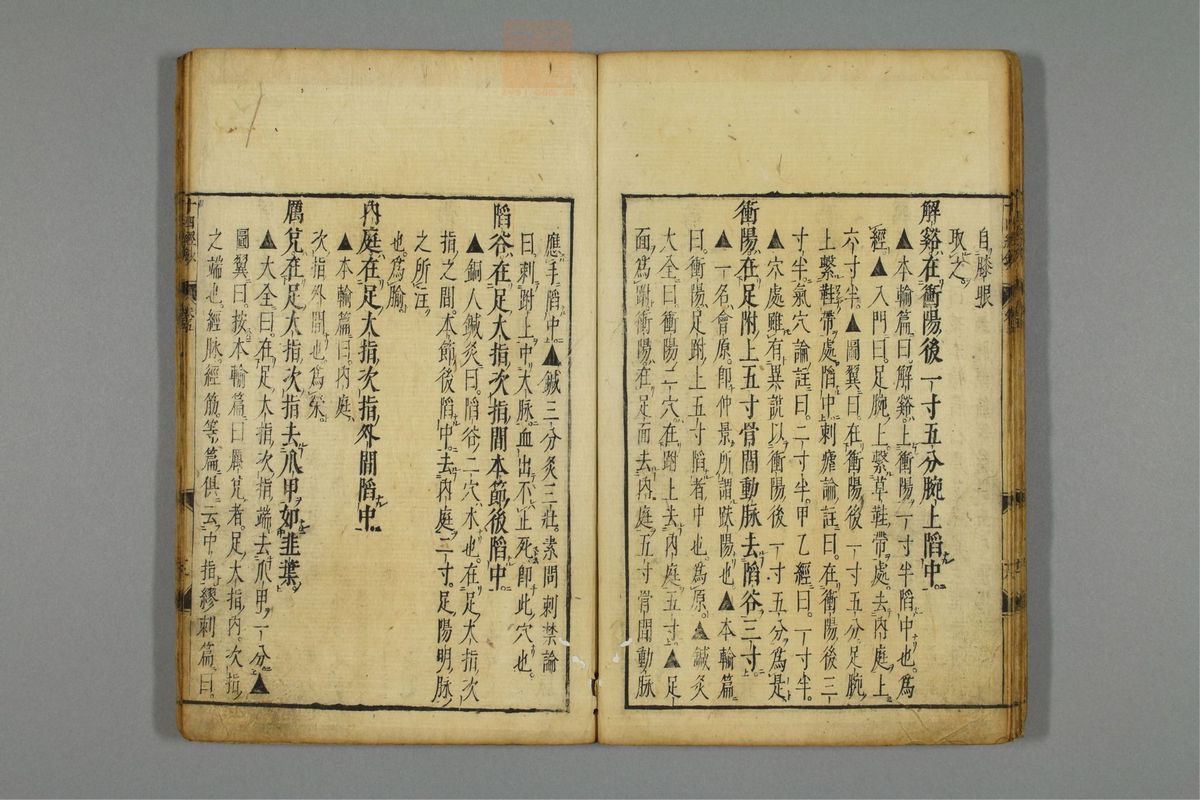 自膝眼
取之
解谿在衝陽後一寸五分腕上陷中
▲本輸篇曰解谿上衝陽一寸半陷中也爲
經▲入門曰足腕上繫草鞋帶處去內庭上
六寸半▲圖翼曰在衝陽後一寸五分足腕
上繫鞋帶處陷中刺瘧論註曰在衝陽後三
寸半氣穴論註曰二寸半甲乙經曰一寸半
▲穴處雖有異說以衝陽後一寸五分爲是
衝陽在足跗上五寸骨間動脉去陷谷三寸
▲一名會原即仲景所謂趺陽也▲本輸篇
曰衝陽足跗上五寸陷者中也爲原▲鍼灸
大全曰衝陽二穴在跗上去內庭五寸▲足
面爲跗衝陽在足面去內庭五寸骨間動脉
應手陷中▲鍼三分灸三壯素問刺禁論
曰刺跗上中大脉血出不止死即此穴也
陷谷在足大指次指間本節後陷中
▲銅人鍼灸曰陷谷二穴木也在足大指次
指之間本節後陷中去內庭二寸足陽明脉
之所注
也爲腧
內庭在足大指次指外間陷中
▲本輸篇曰內庭
次指外間也爲滎
厲兌在足大指次指去爪甲如韭葉
▲大全曰在足大指次指端去爪甲一分▲
圖翼曰按本輸篇曰厲兌者足大指內次指
之端也經脉經筋等篇俱云中指繆刺篇曰